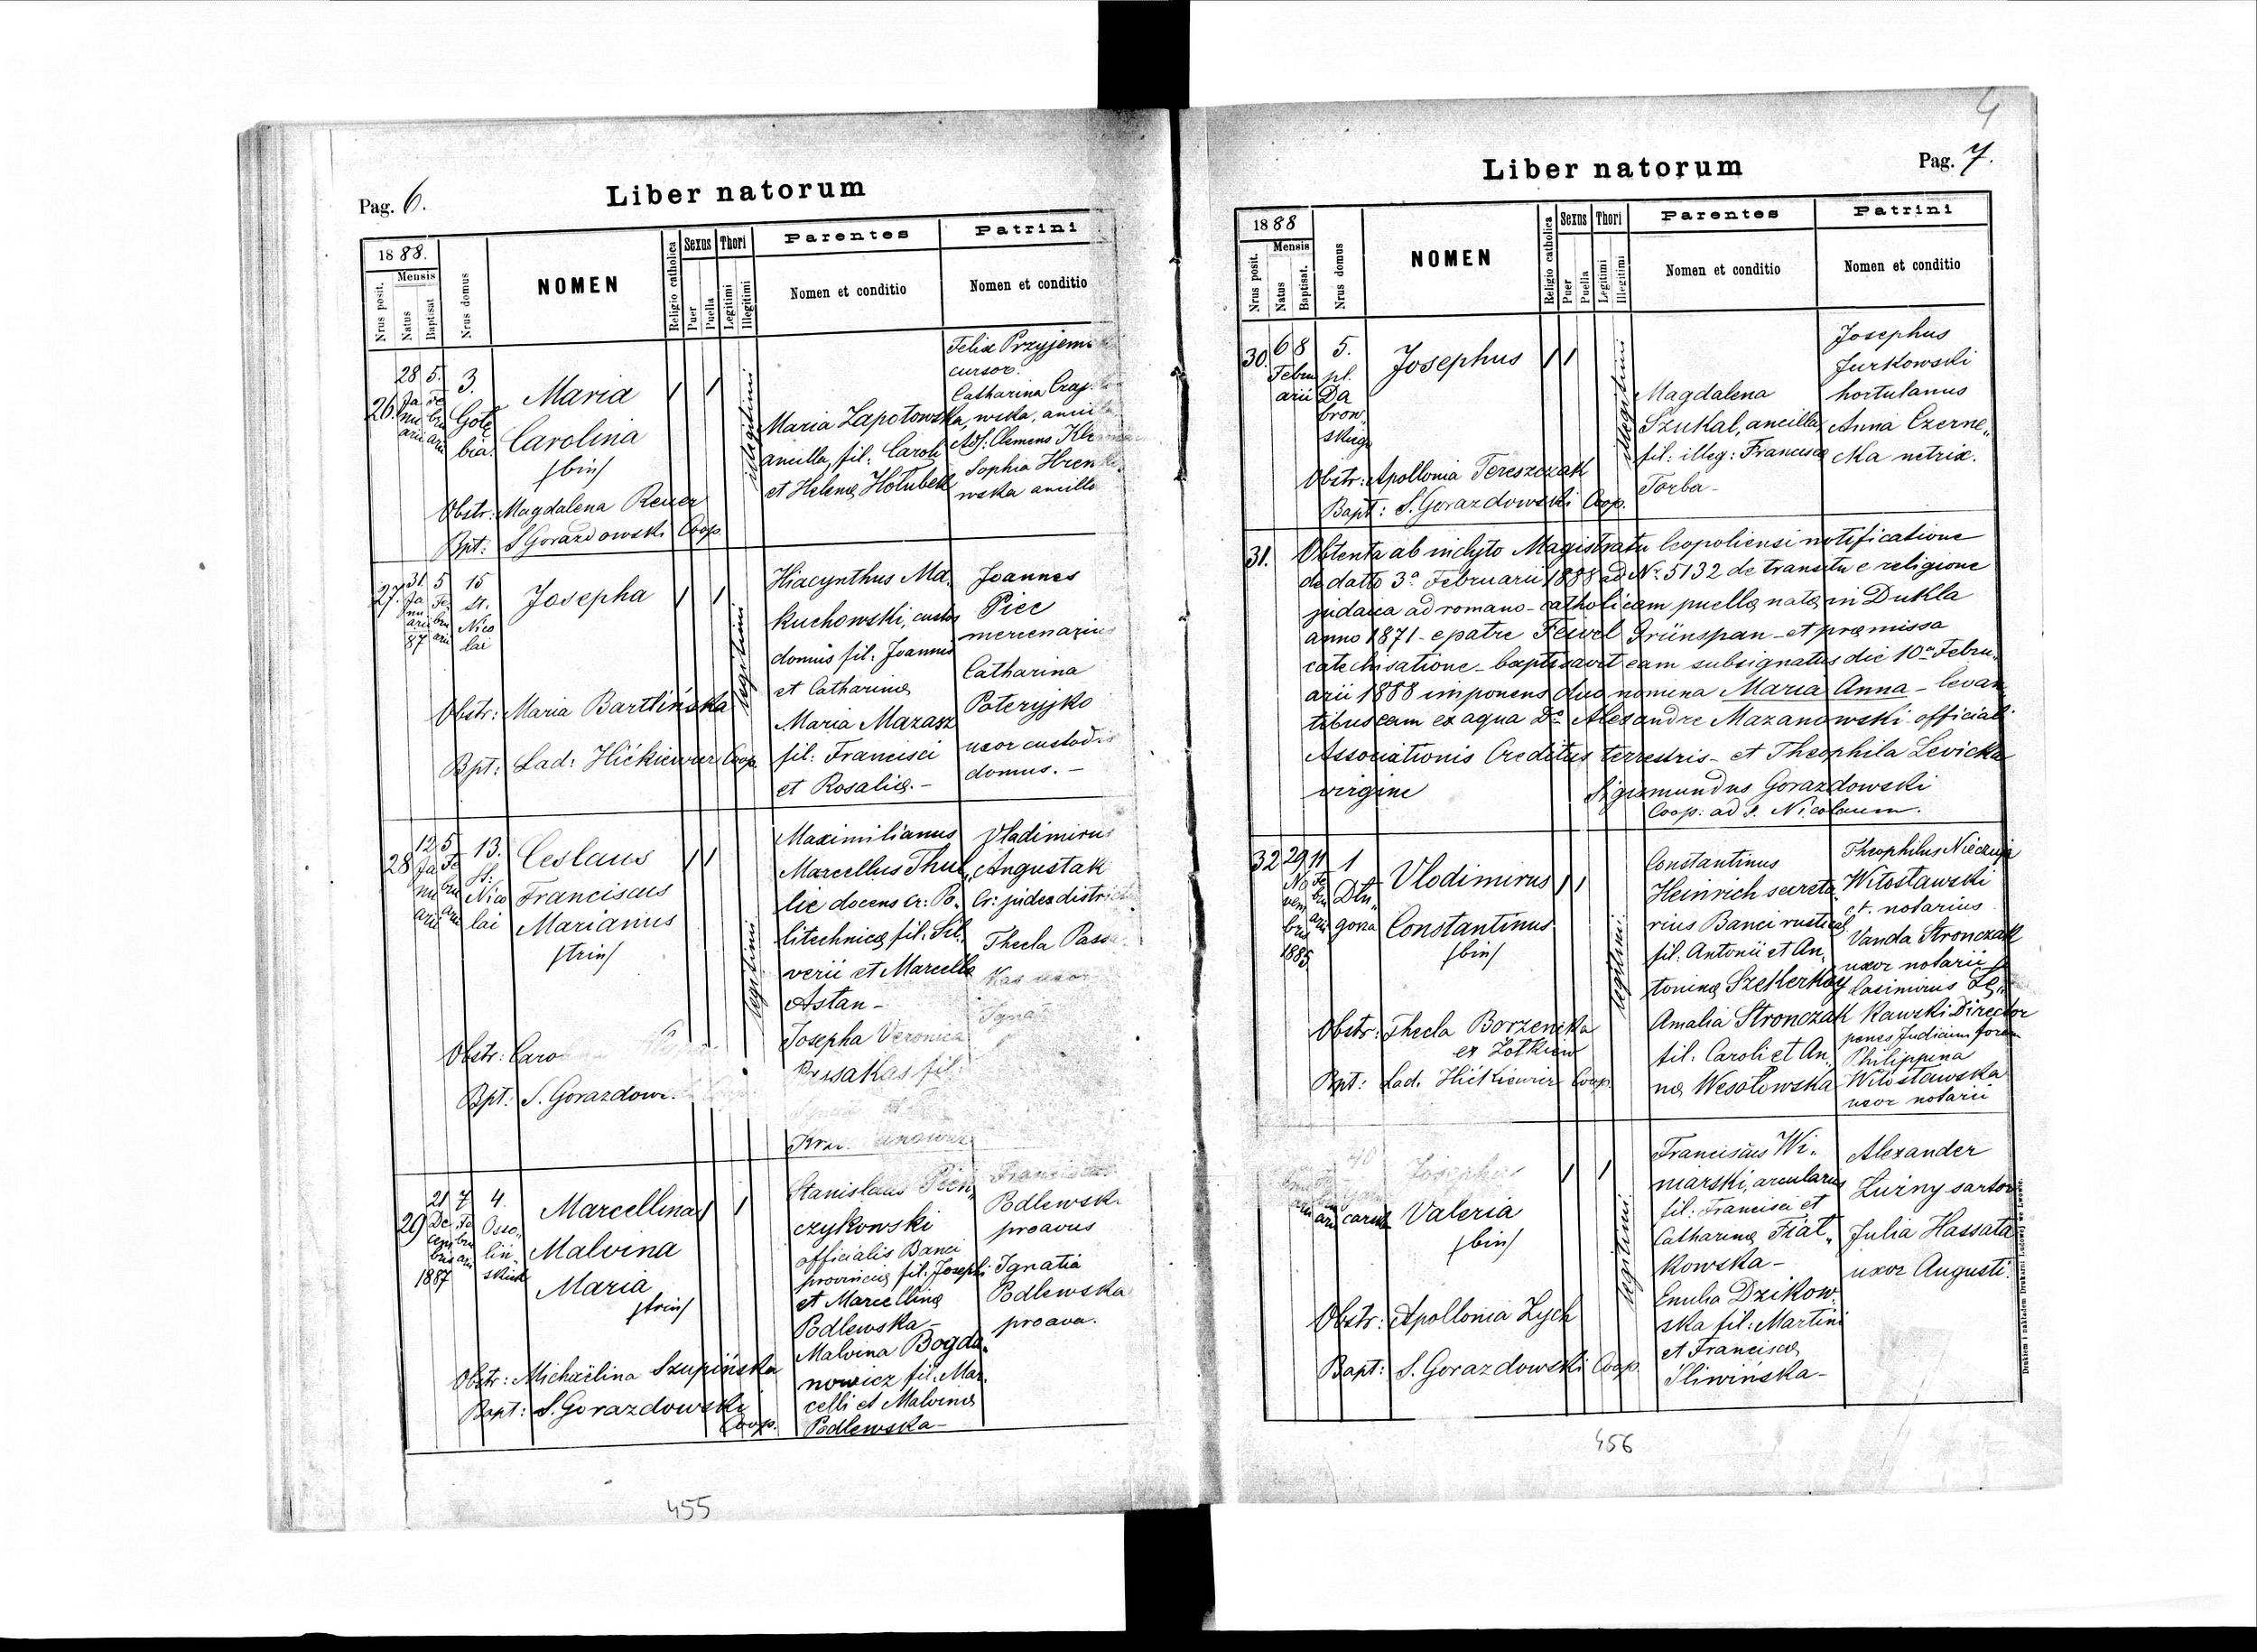 Pag. 6.
Liber natorum
1888.
Mensis
Nrus posit.
Natus
Baptisat
Nrus domus
NOMEN
Religio catholica
Sexus
Puer
Puella
Thori
Legitimi
Illegitimi
Parentes
Nomen et conditio
Patrini
Nomen et conditio
26.
28 Januarii
5. Februarii
3. Gołębia
Maria
Carolina
/bin/
Obstr: Magdalena Reuer
Bpt: S Gorazdowski Coop.
illegitimi
Maria Zapotowska,
ancilla, fil: Caroli
et Helenę Hołubek
Felix Przyjem
cursor.
Catharina Czap
wska, ancilla
Ads. Clemens
Sophia
wska ancilla
27.
31. Januarii 87
5 Februarii
15 st. Nicolai
Josepha
Obstr: Maria Bartlińska
Bpt: Lad: Hićkiewicz Coop.
legitimi
Hiacynthus Ma,
kuchowski, custos
domus fil: Joannis
et Catharinę
Maria Mazasz
fil: Francisci
et Rosalię. —
Joannes
Piec
mercenarius
Catharina
Poteryjko
uxor custodis
domus. —
28
12 Januarii
5 Februarii
13. St: Nicolai
Ceslaus
Franciscus
Marianus
/trin/
Obstr: Caro
Bpt: S. Gorazdow
legitimi
Maximilianus
Marcellus Thul,,
lie docens cr: Po,
litechnicę fil: Sil,
verii et Marcella
Astan —
Josepha Veronica
fil:
Vladimirus
Angustak
Cr: judex district
Thecla
29
21 Decembris 1887
7 Februarii
4. Ossolińskich
Marcellina
Malvina
Maria
/trin/
Obstr: Michaëlina Szupińska
Bapt: S. Gorazdowski
Coop.
Stanislaus Pień,
czykowski
officialis Banci
provincię fil: Josephi
et Marcellinę
Podlewska —
Malvina Bogda,
nowicz fil: Mar,
celli et Malvinę
Podlewska —
Podlewski
proavus
Ignatia
Podlewska
proava.
455
4
Liber natorum
Pag. 7.
1888
Mensis
Nrus posit.
Natus
Baptisat.
Nrus domus
NOMEN
Religio catholica
Sexus
Puer
Puella
Thori
Legitimi
Illegitimi
Parentes
Nomen et conditio
Patrini
Nomen et conditio
30.
6 8 Februarii
5. pl. Dabrowskiego
Josephus
Obstr: Apollonia Tereszczak
Bapt: S. Gorazdowski Coop.
illegitimi
Magdalena
Szukal, ancilla
fil: illeg: Francisca
Torba —
Josephus
Jurkowski
hortulanus
Anna Czerne,,
cka netrix.
31.
Obtenta ab inclyto Magistratu leopoliensi notificatione
de datto 3ª Februarii 1888 ad Nr. 5132 de transitu e religione
judaica ad romano-catholicam puellę natę in Dukla
anno 1871 – e patre Feiwel Grünspan – et pręmissa
catechisatione – baptisavit eam subsignatus die 10ª Febru,
arii 1888 imponens duo nomina Maria Anna – levan,
tibus eam ex aqua Dº Alexandre Mazanowski officiali
Associationis Creditus terrestris – et Theophila Levicka
virgine
Sigismundus Gorazdowski
Coop: ad S. Nicolaum.
32
29 Novembris 1885
11 Februarii
1 Długosza
Vlodimirus
Constantinus
/bin/
Obstr: Thecla Borzemska
ex Żółkiew
Bpt: Lad. Hićkiewicz Coop.
legitimi
Constantinus
Heinrich secreta,
rius Banci rustical
fil. Antonii et An,
toninę Szekerkay
Amalia Stronczak
fil: Caroli et An,
nę Wesołowska
Theophilus Nieczuja
Witosławski
cr. notarius
Vanda Stronczak
uxor notarii
Casimirus Łę,
kawski Director
penes Judicium foren
Philippina
Witosławska
uxor notarii
Josepha
Valeria
/bin/
Obstr: Apollonia Zych
Bapt: S. Gorazdowski Coop.
legitimi
Franciscus Wi,
niarski, arcularius
fil: Francisci et
Catharinę Fiał,
kowska —
Emilia Dzikow,
ska fil: Martini
et Franciscę
Śliwińska —
Alexander
Luźny sartor
Julia Hassata
uxor Augusti.
Drukiem i nakładem Drukarni Ludowej we Lwowie.
456